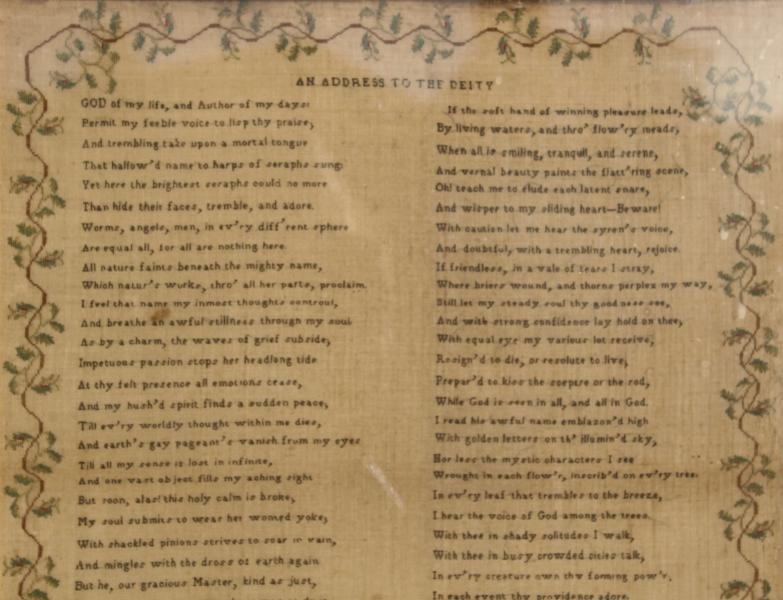 AN ADDRESS TO THE DEITY
GOD of my life, and Author of my days!
Permit my feeble voice to lisp thy praise;
And trembling take upon a mortal tongue
That hallow'd name to harps of seraphs sung:
Yet here the brightest seraphs could no more
Than hide their faces, tremble, and adore.
Worms, angels, men, in ev'ry diff'rent sphere
Are equal all, for all are nothing here.
All nature faints beneath the mighty name,
Which natur's works, thro' all her parts, proclaim.
I feel that name my inmost thoughts controul,
And breathe an awful stillness through my soul
As by a charm, the waves of grief subside;
Impetuous passion stops her headlong tide
At thy felt presence all emotions cease,
And my hush'd spirit finds a sudden peace;
Till ev'ry worldly thought within me dies,
And earth's gay pageant's vanish from my eyes
Till all my sense is lost in infinite,
And one vast object fills my aching sight
But soon, alas! this holy calm is broke;
My soul submits to wear her wonted yoke;
With shackled pinions strives to soar in vain,
And mingles with the dross of earth again
But he, our gracious Master, kind as just,
If the soft hand of winning pleasure leads,
By living waters, and thro' flow'ry meads,
When all is smiling, tranquil, and serene,
And vernal beauty paints the flatt'ring scene,
Oh! teach me to elude each latent snare,
And wisper to my sliding heart—Beware!
With caution let me hear the syren's voice,
And doubtful, with a trembling heart, rejoice.
If friendless, in a vale of tears I stray,
Where briers wound, and thorns perplex my way,
Still let my steady soul thy goodness see,
And with strong confidence lay hold on thee;
With equal eye my various lot receive,
Resign'd to die, or resolute to live;
Prepar'd to kiss the sceptre or the rod,
While God is seen in all, and all in God.
I read his awful name emblazon'd high
With golden letters on th' illumin'd sky,
Nor less the mystic characters I see
Wrought in each flow'r, inscrib'd on ev'ry tree.
In ev'ry leaf that trembles to the breeze,
I hear the voice of God among the trees.
With thee in shady solitudes I walk,
With thee in busy crowded cities talk,
In ev'ry creature own thy forming pow'r,
In each event thy providence adore.